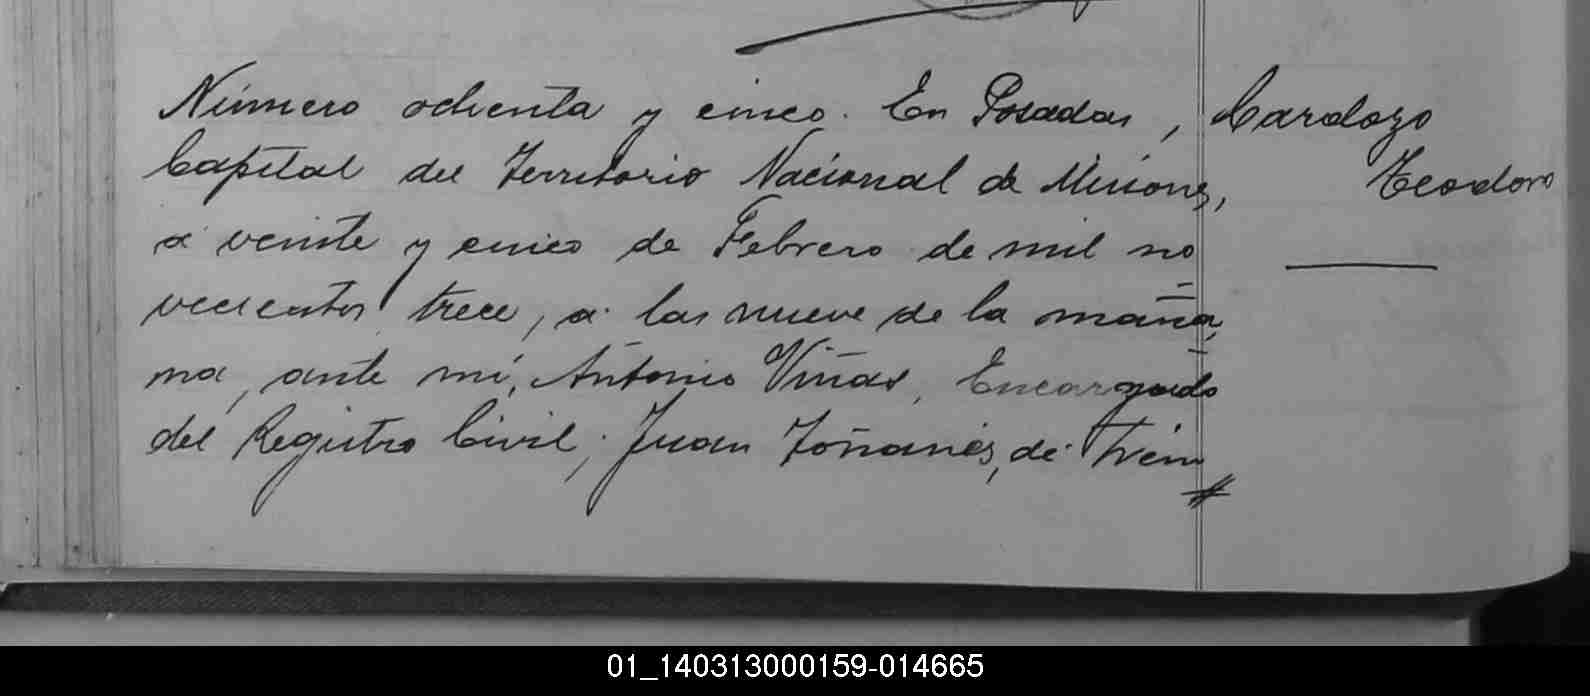 Número ochenta y cinco. En Posadas,
Capital del Territorio Nacional de Misiones,
a veinte y cinco de Febrero de mil no
vecientos trece, a las nueve de la maña
na, ante mí, Antonio Viñas, Encargado
del Registro Civil; Juan Toñanés, de trein
Cardozo
Teodoro
01_140313000159-014665